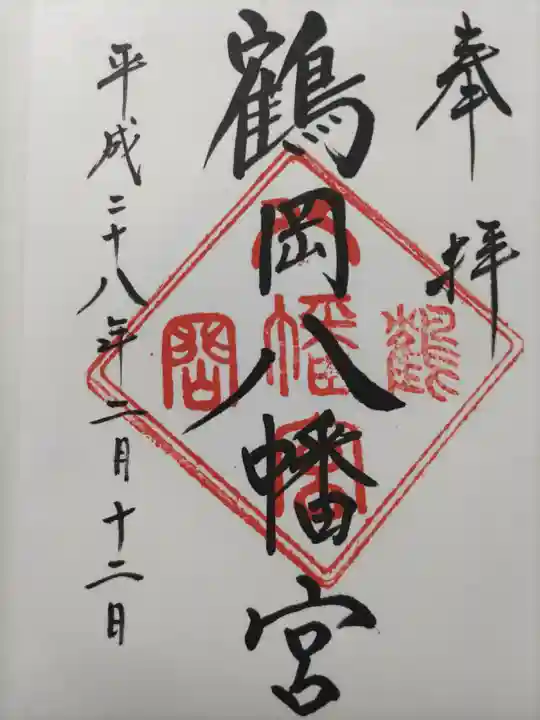 奉拝
鶴岡八幡宮
平成二十八年二月十二日
鶴
八幡宮
岡